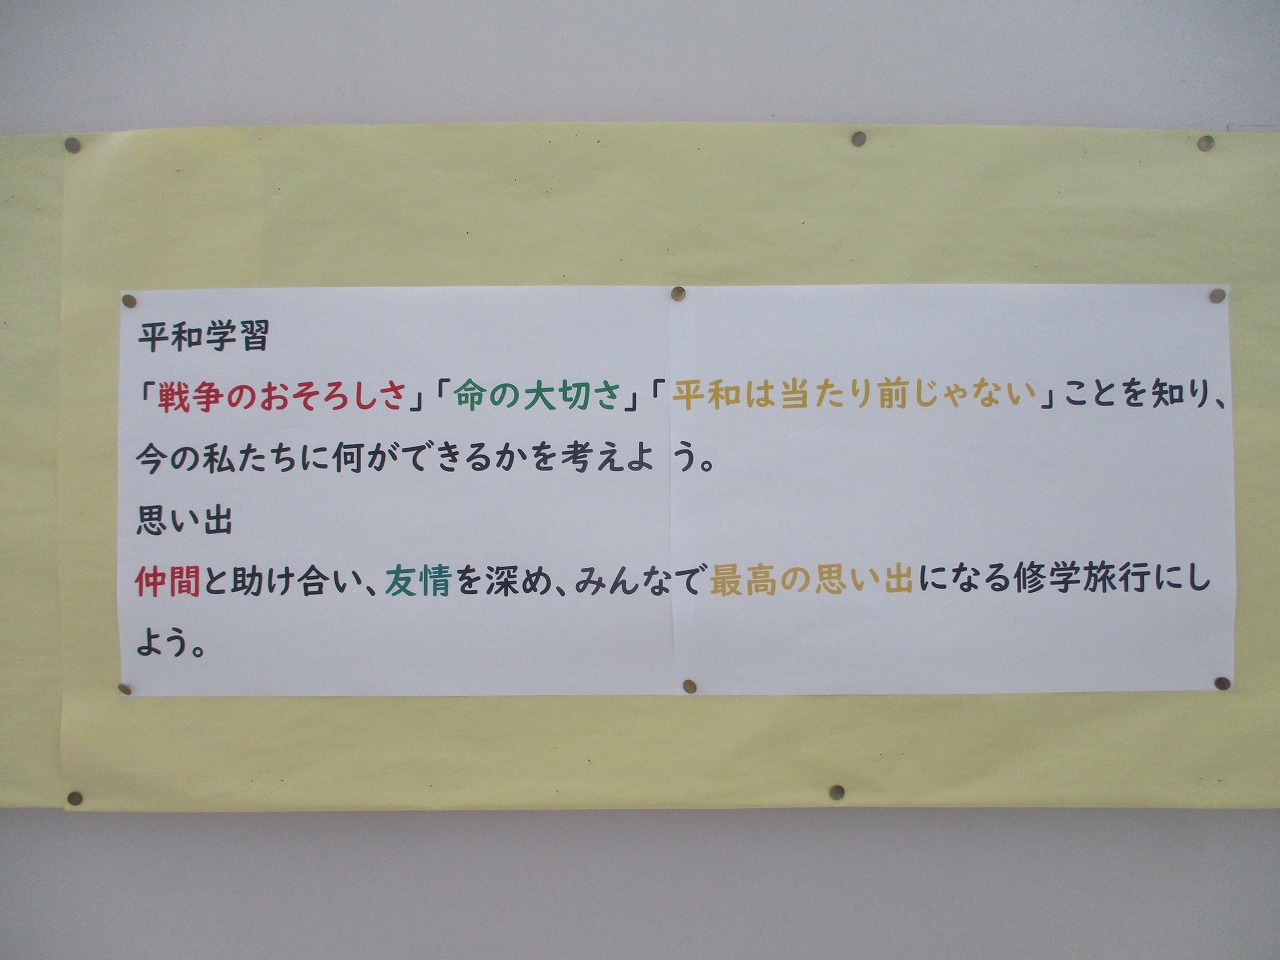 平和学習
「戦争のおそろしさ」「命の大切さ」「平和は当たり前じゃない」ことを知り、
今の私たちに何ができるかを考えよう。
思い出
仲間と助け合い、友情を深め、みんなで最高の思い出になる修学旅行にし
よう。